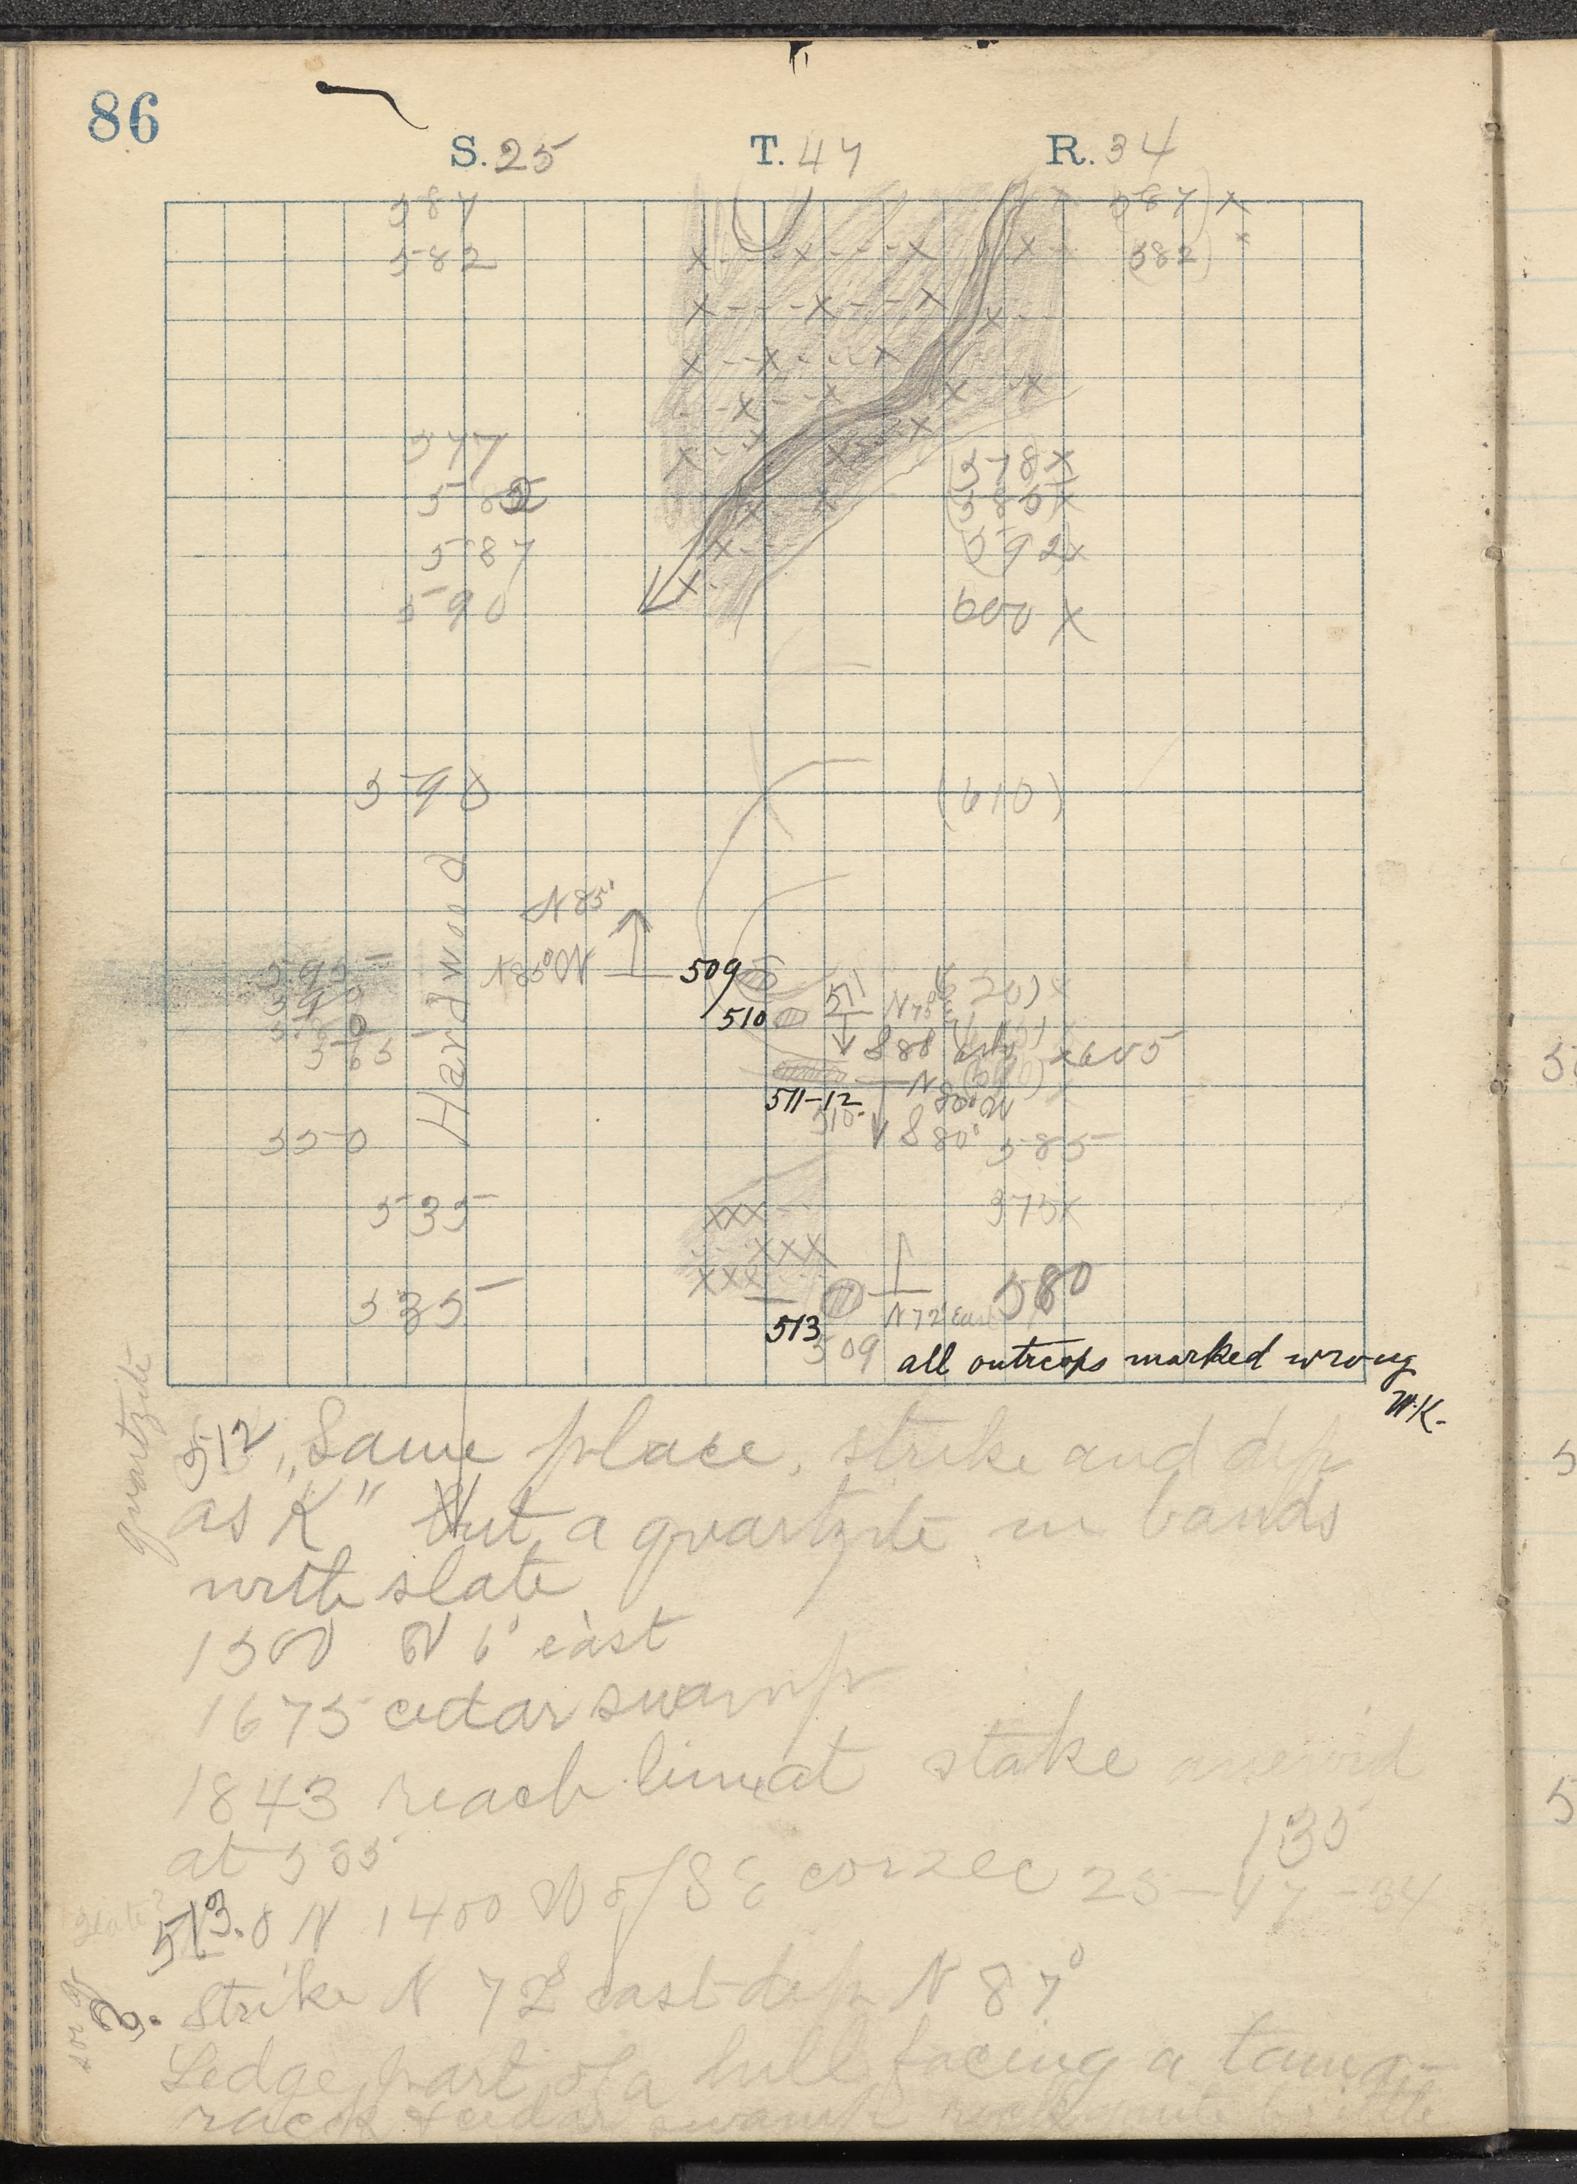 86
S. 25 T. 47 R. 34
587 587) x
582 (582)
577 (578 x
585 x
587 (592 x
590 600 x
590 (610)
Hardwood
N 85°
N 85° W 509
595 620) x
590 510 511 N 75° E
S 88° x605
565 N 80° W
511-12
510
550 S 80° 585
535 575 x
535 580
N 72° East
513
509 all outcrops marked wrong
W.K.
quartzite
512 "Same place, strike and dip
as K" but a quartzite in bands
with slate
1500 N 6° east
1675 cedar swamp
1843 reach line at stake aneroid
at 535 135
slate?
513. 0 N 1400 W of SE cor sec 25-47-34
Strike N 72 east dip N 87°
Ledge part of a hill facing a tama-
rack & cedar swamp rock quite brittle